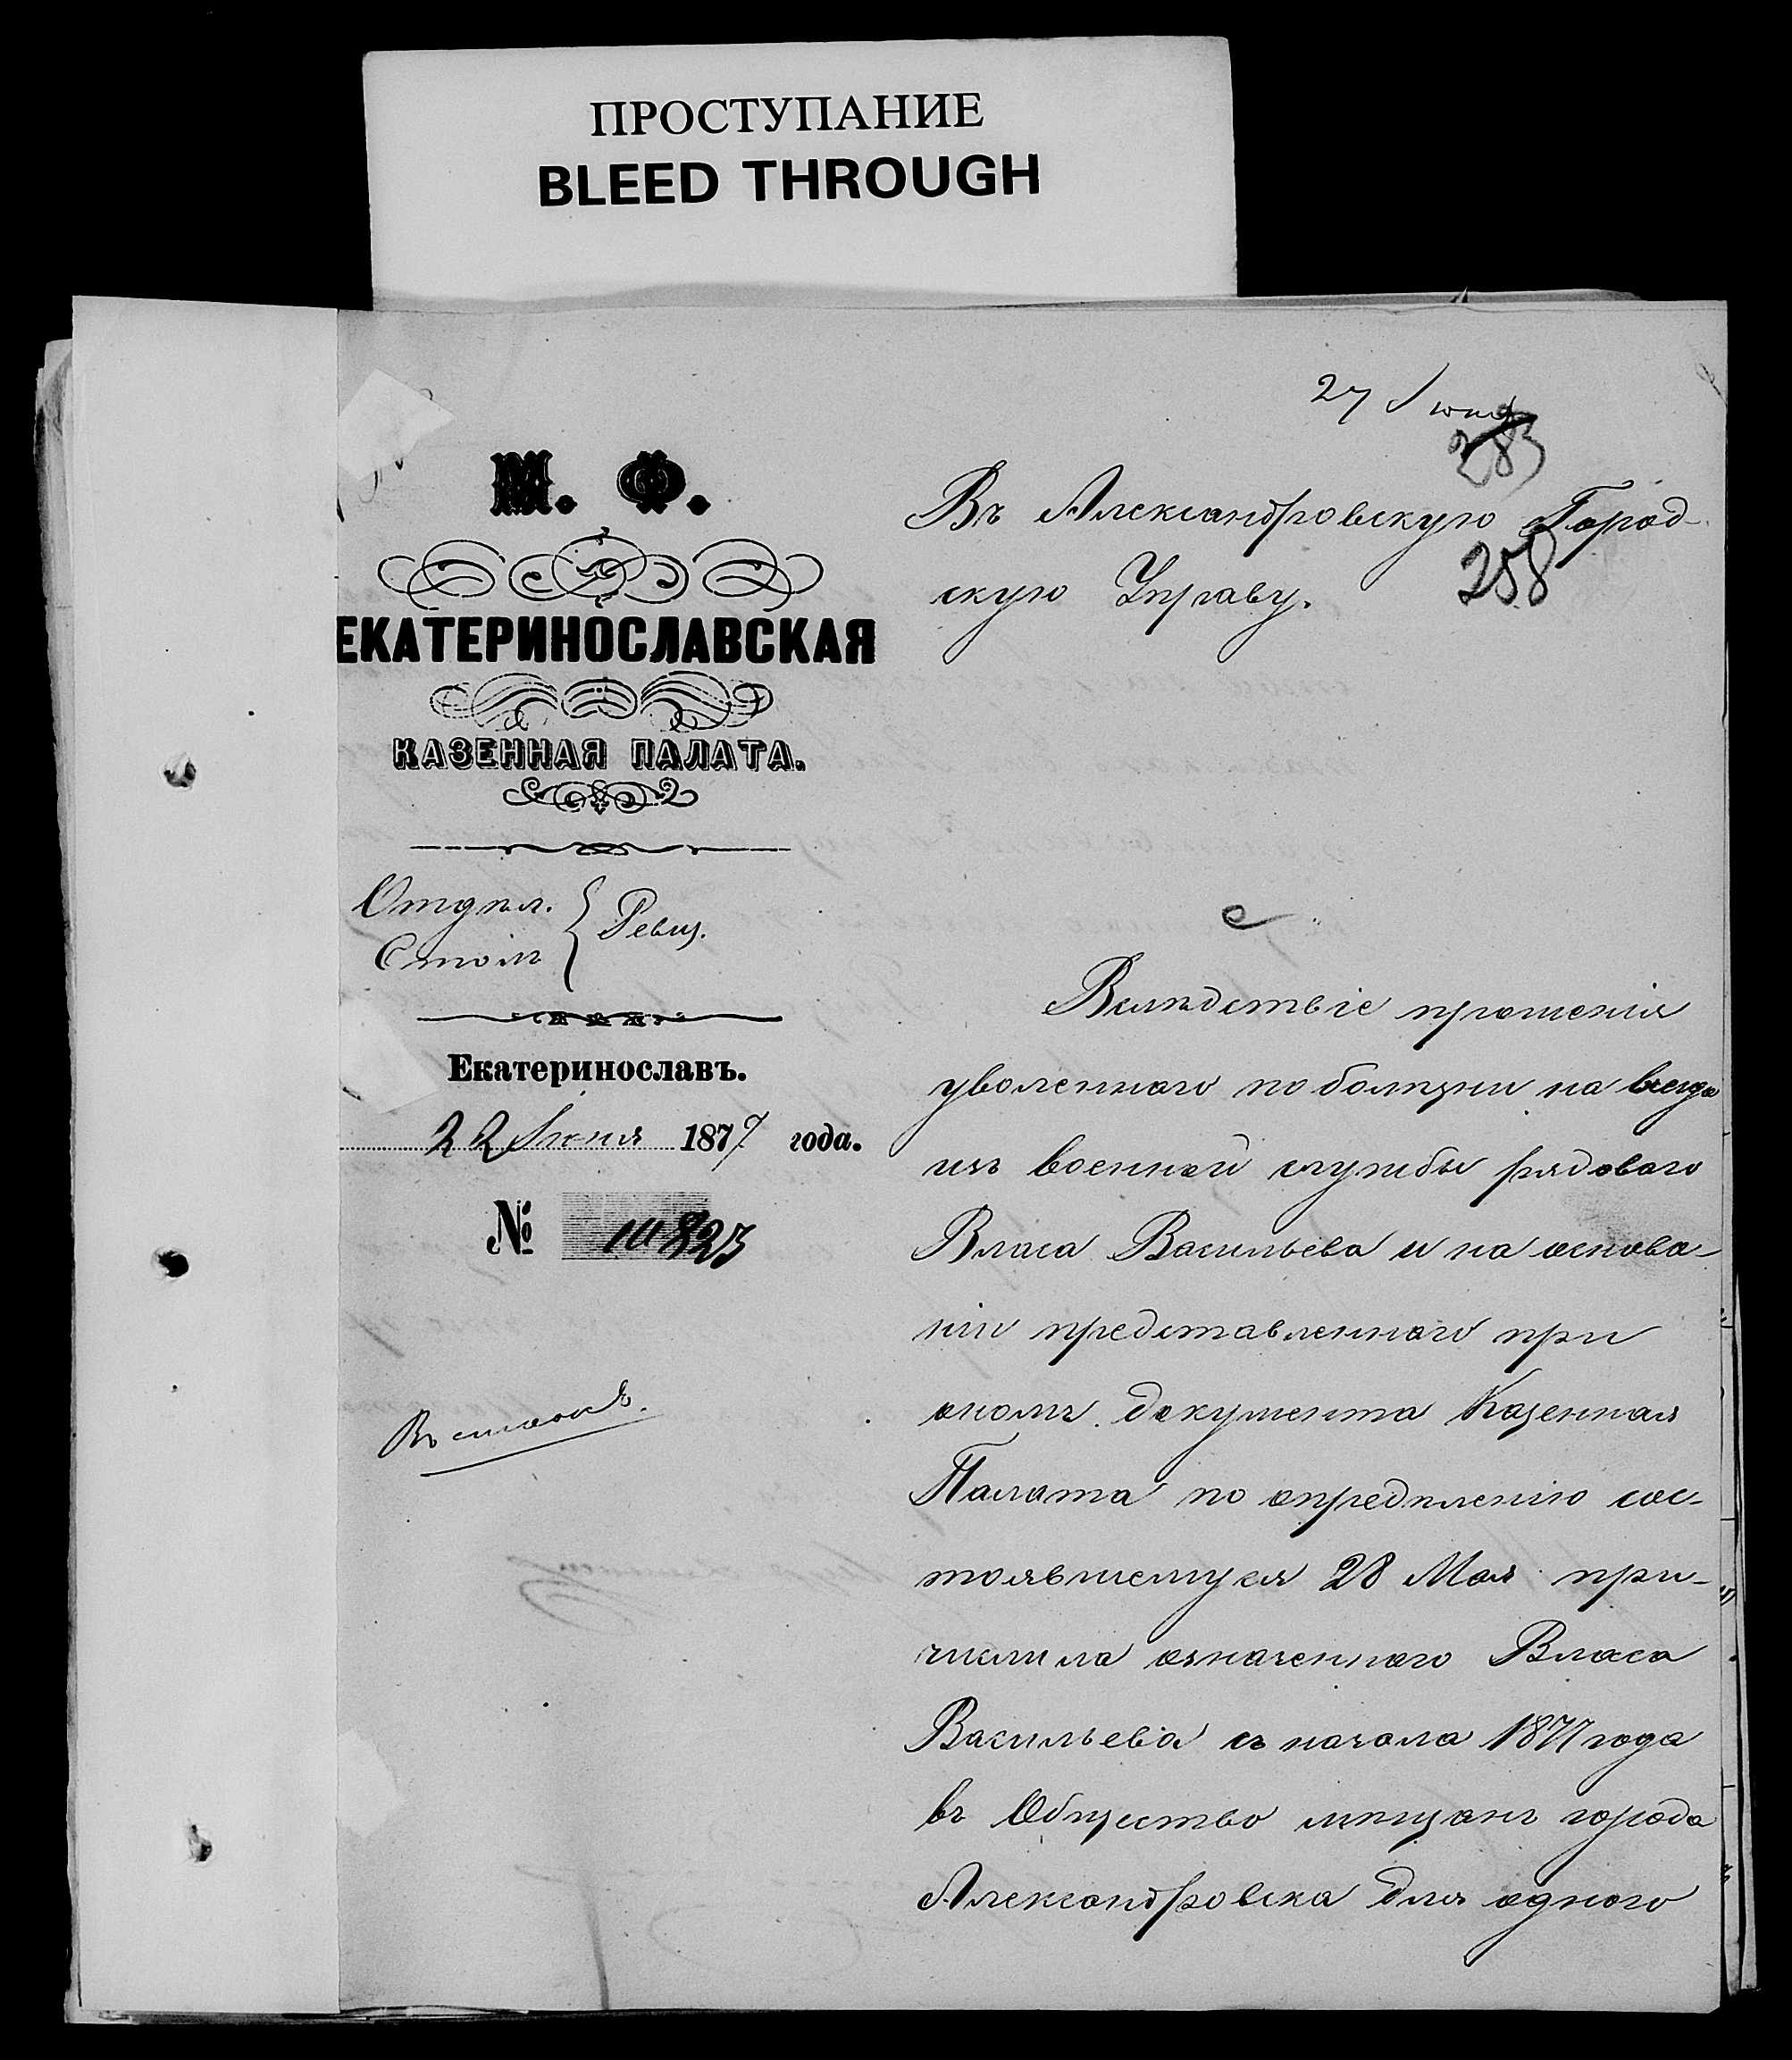 ПРОСТУПАНИЕ
BLEED THROUGH
27 Іюня
283
258
М. Ф.
ЕКАТЕРИНОСЛАВСКАЯ
КАЗЕННАЯ ПАЛАТА.
Отдѣл.
Столъ
Ревиз.
Екатеринославъ.
22 Іюня 1877 года.
№ 10823
Въ Александровскую Город-
скую Управу.
Вслѣдствіе прошенія
уволеннаго по болѣзни на всегда
изъ военной службы рядоваго
Власа Васильева и на основа-
ніи представленнаго при
ономъ документа Казенная
Палата по опредѣленію сос-
тоявшемуся 28 Мая при-
числила означеннаго Власа
Васильева съ начала 1877 года
въ Общество мѣщанъ города
Александровска для одного